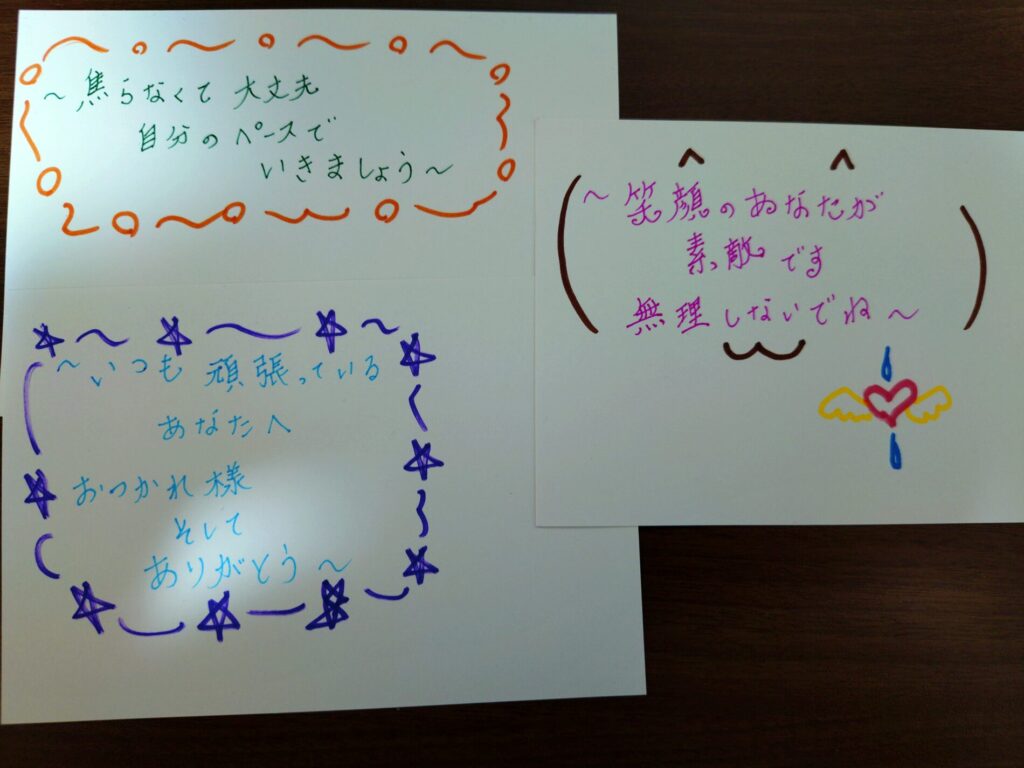 ～焦らなくて大丈夫
自分のペースで
いきましょう～
～いつも頑張っている
あなたへ
おつかれ様
そして
ありがとう～
～笑顔のあなたが
素敵です
無理しないでね～